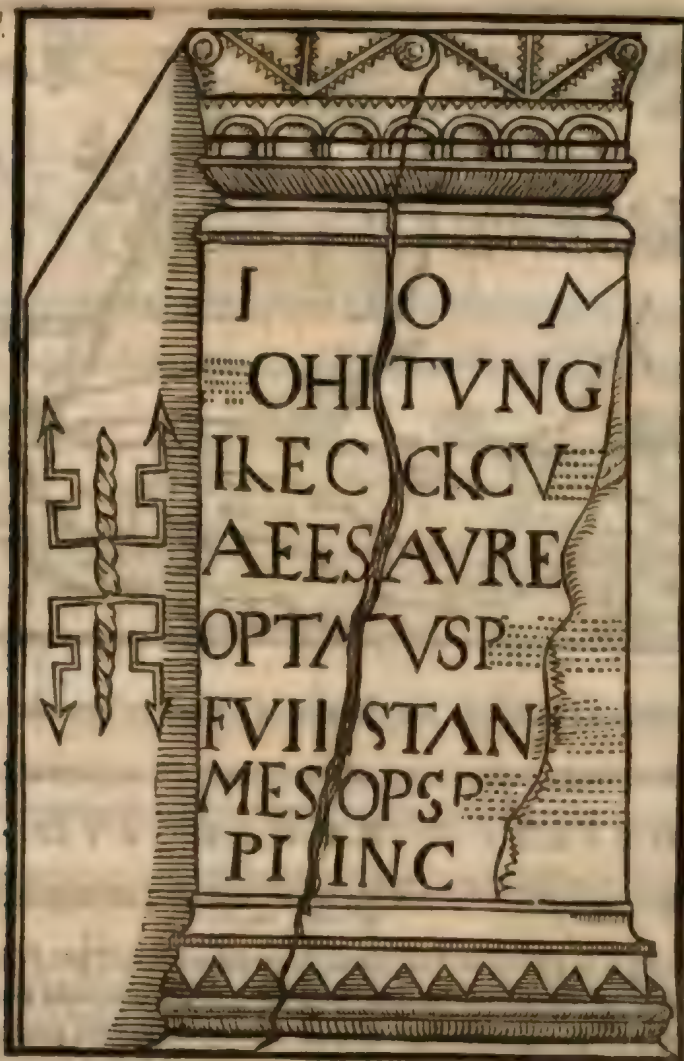 I O M
OHI TVNG
IREC CRCV
AEES AVRE
OPTATVS P
FVII STAN
MES OPS P
PI INC